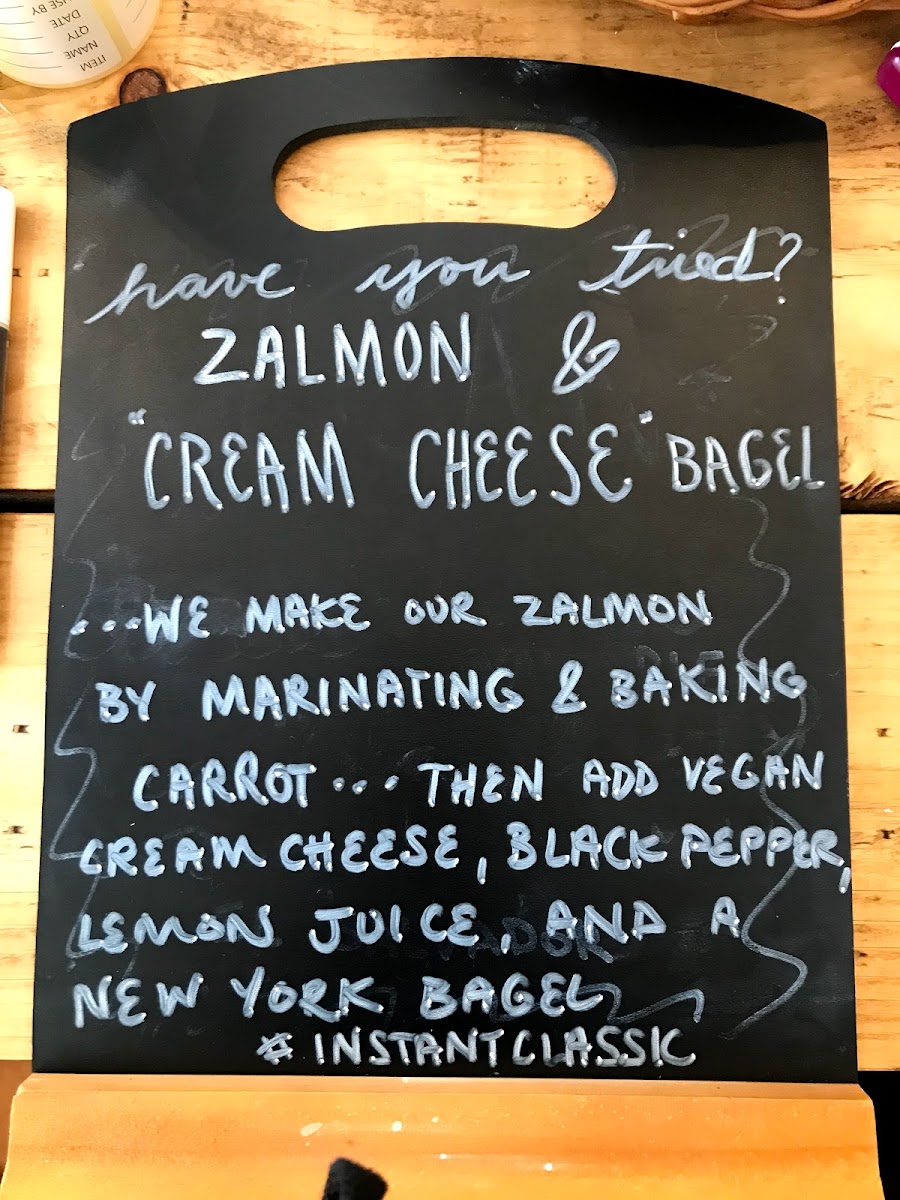 ITEM
NAME
QTY
DATE
USE BY
have you tried?
ZALMON &
"CREAM CHEESE" BAGEL
...WE MAKE OUR ZALMON
BY MARINATING & BAKING
CARROT... THEN ADD VEGAN
CREAM CHEESE, BLACK PEPPER,
LEMON JUICE, AND A
NEW YORK BAGEL
#INSTANTCLASSIC